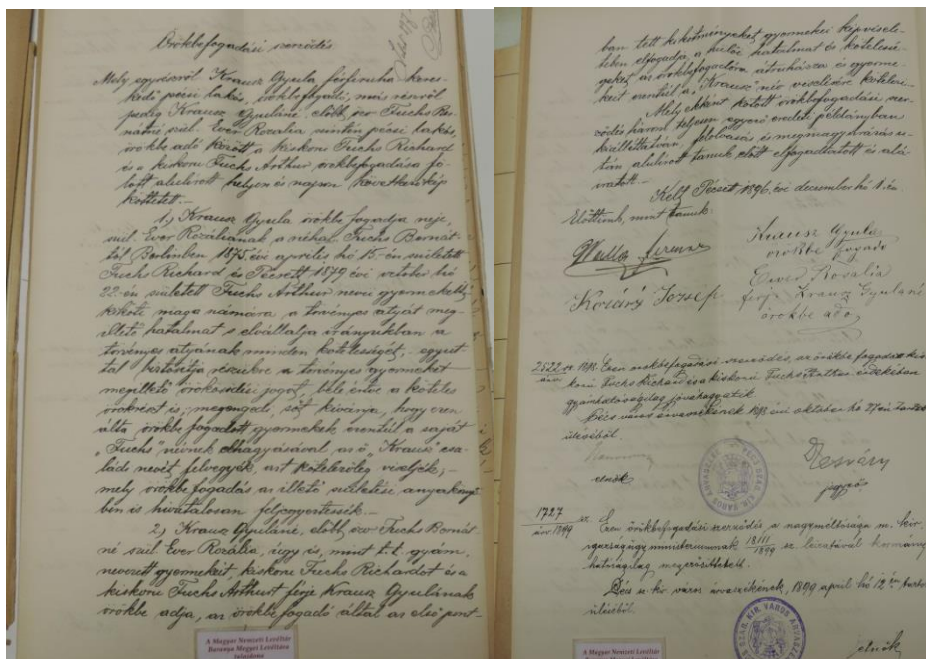 Örökbefogadási szerződés
Mely egyrészről Krausz Gyula férfiruha-keres-
kedő pécsi lakos, örökbefogadó, más részről
pedig Krausz Gyuláné, előbb özv. Fuchs Ber-
nátné szül. Ever Rozália szintén pécsi lakos,
örökbe adó között a kiskorú Fuchs Richard
és a kiskorú Fuchs Arthur örökbefogadása fö-
lött alulírott helyen és napon következőkép
köttetett.-
1.) Krausz Gyula örökbe fogadja neje,
szül. Ever Rozáliának a néhai Fuchs Bernát-
tól Berlinben 1875. évi április hó 15-én született
Fuchs Richard és Pécsett 1879 évi október hó
22-én született Fuchs Arthur nevű gyermekeit,
kiköti maga számára, a törvényes atyát meg-
illető hatalmat s elvállalja irányukban a
törvényes atyának minden kötelességét, - egyut-
tal biztosítja részükre a törvényes gyermeket
megillető örökösödési jogot, bele értve a köteles
örökrészt is, - megengedi, sőt kívánja, hogy ezen
általa örökbe fogadott gyermekek ezentúl a saját
"Fuchs" névnek elhagyásával, az ő "Krausz" csa-
láds nevét felvegyék, azt kötelezőleg viseljék, -
mely örökbe fogadás az illető születési anyaköny-
ben is hivatalosan feljegyeztessék.-
2.) Krausz Gyuláné, előbb özv Fuchs Bernát-
né szül. Ever Rozália, úgy is, mint t. t. gyám,
nevezett gyermekeit, kiskorú Fuchs Richardot és a
kiskorú Fuchs Arthurt férje Krausz Gyulának
örökbe adja, az örökbefogadó által az első pont-
A Magyar Nemzeti Levéltár
Baranya Megyei Levéltára
tulajdona
ban tett kikötményeket gyermekei képvisele-
tében elfogadja, a szülői hatalmat és kötelessé-
geket az örökbefogadóra átruházza és gyerme-
keit ezentúl a "Krausz" név viselésére kötelezi.
Mely ekként kötött örökbefogadási szer-
ződés három teljesen egyező eredeti példányban
kiállíttatván, felolvasás és megmagyarázás u-
tán alulírott tanuk előtt elfogadtatott és alá-
iratott.-
Kelt Pécsett 1896. évi december hó 1. én.
Előttünk, mint tanuk
Krausz Gyula
örökbe fogadó
Ferenc
Ever Rosalia
Kozáry József
férj. Krausz Gyuláné
örökbe adó
2522 sz. Ezen örökbefogadási szerződés, az örökbe fogadott kis
árv.
korú Fuchs Richard és a kiskorú Fuchs Arthur érdekében
gyámhatóságilag jóváhagyatik.
Pécs város árvaszékének évi október hó
üléséből.
elnök
jegyző
1727 sz
árv. 1899
Ezen örökbefogadási szerződés a nagyméltóságu m. kir.
igazságügyministeriumnak 18111/1899 sz. leiratával kormány
hatóságilag megerősíttetett.
Pécs sz. kir. város árvaszékének, 1899 április hó 12-én tartott
üléséből.
elnök
A Magyar Nemzeti Levéltár